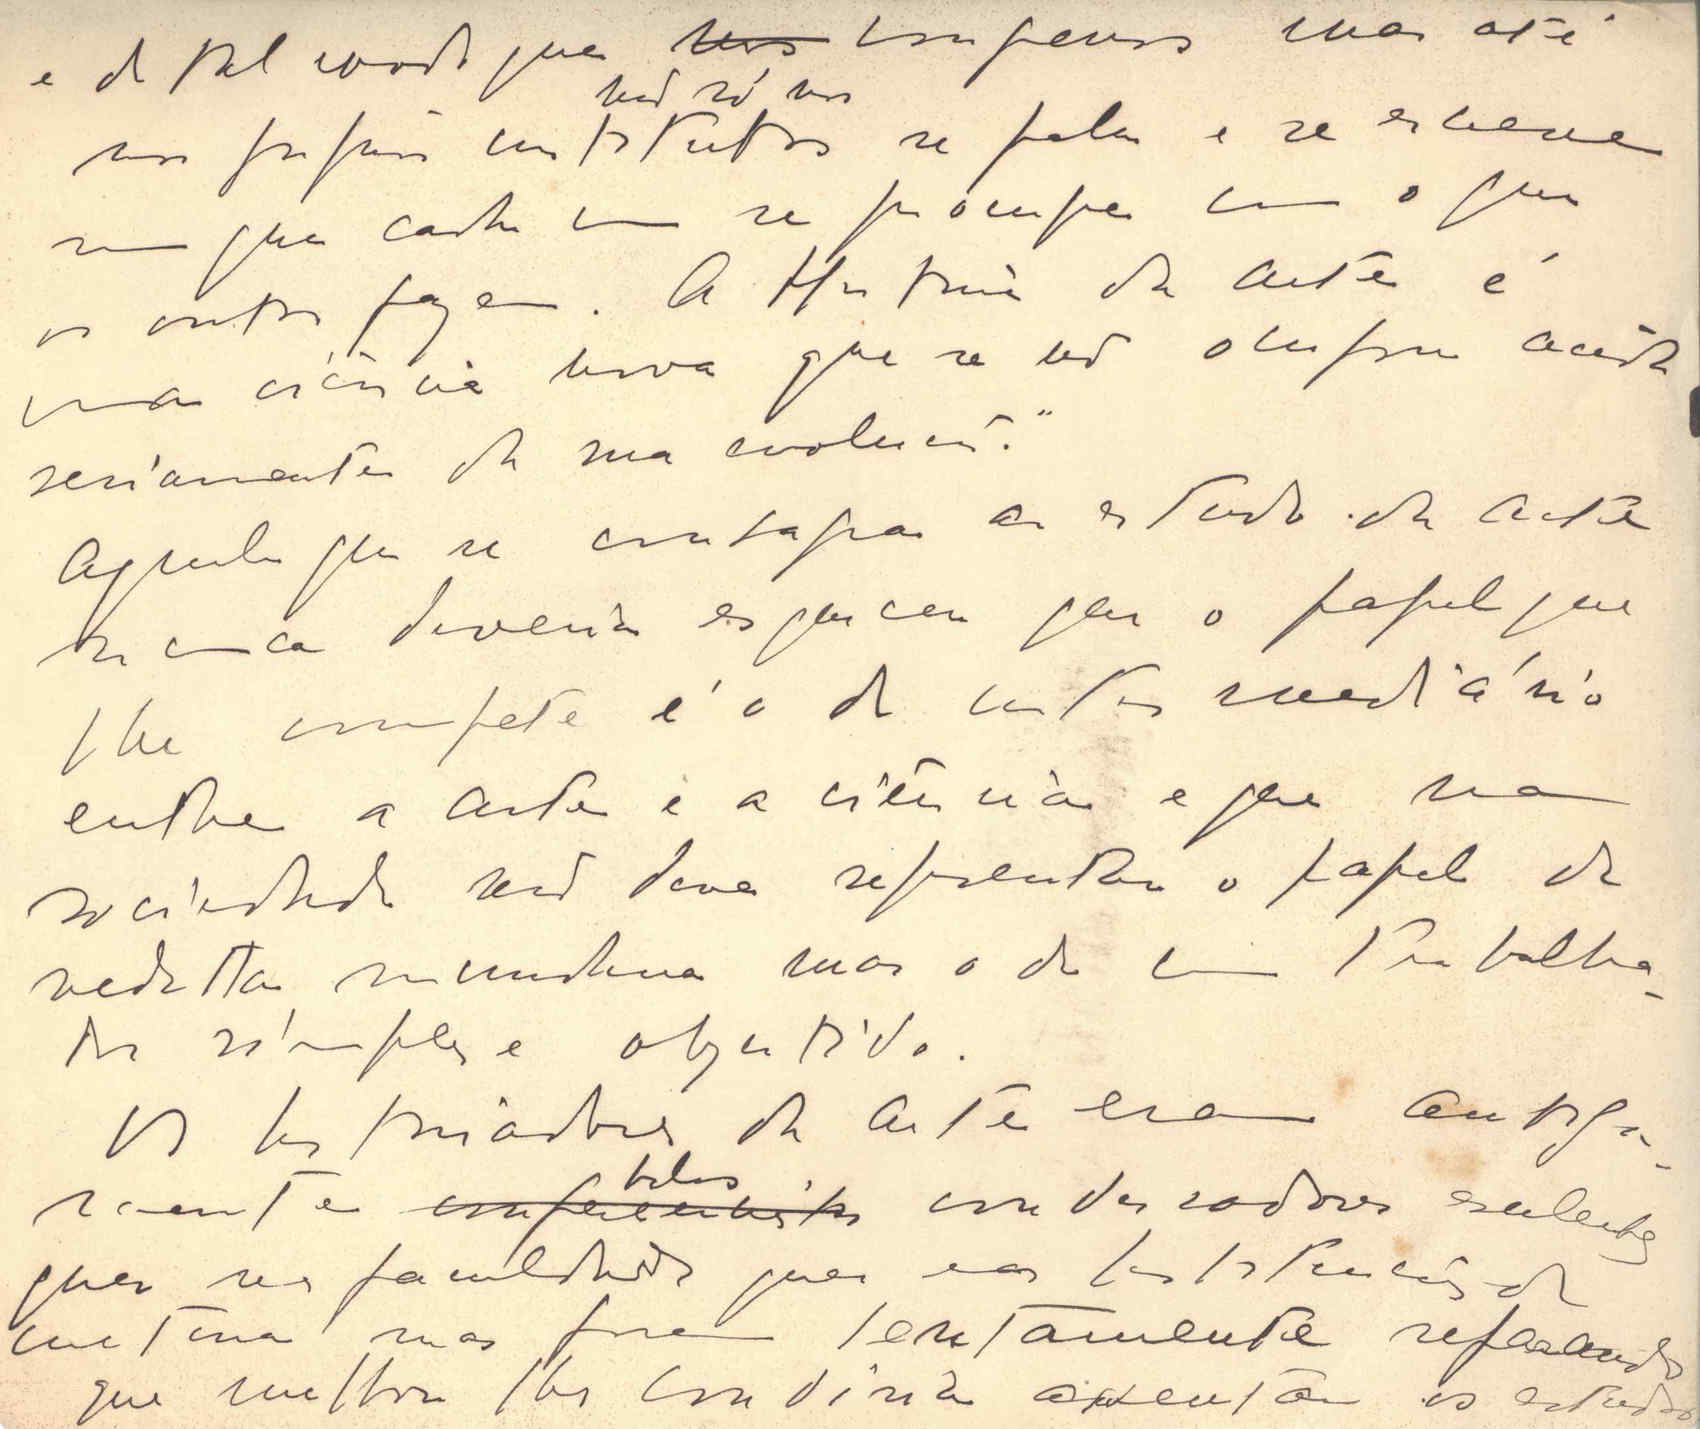 e de tal modo que nos congressos mas até
não só nos
nos próprios institutos se fala e se escreve
sem que cada um se preocupe com o que
os outros fazem. A História da arte é
uma ciência nova que se não ocupou ainda
seriamente da sua evolução."
Aquele que se consagra ao estudo da arte
nunca deveria esquecer que o papel que
lhe compete é o de intermediário
entre a arte e a ciência e que na
sociedade não deve representar o papel de
vedetta mundana mas o de um trabalha-
dor simples e objectivo.
Os historiadores da arte eram antiga-
belos
mente conferencistas conversadores excelentes
quer nas faculdades quer nas instituições de
cultura mas foram lentamente reparando
que melhor lhes conviria assentar os estudos